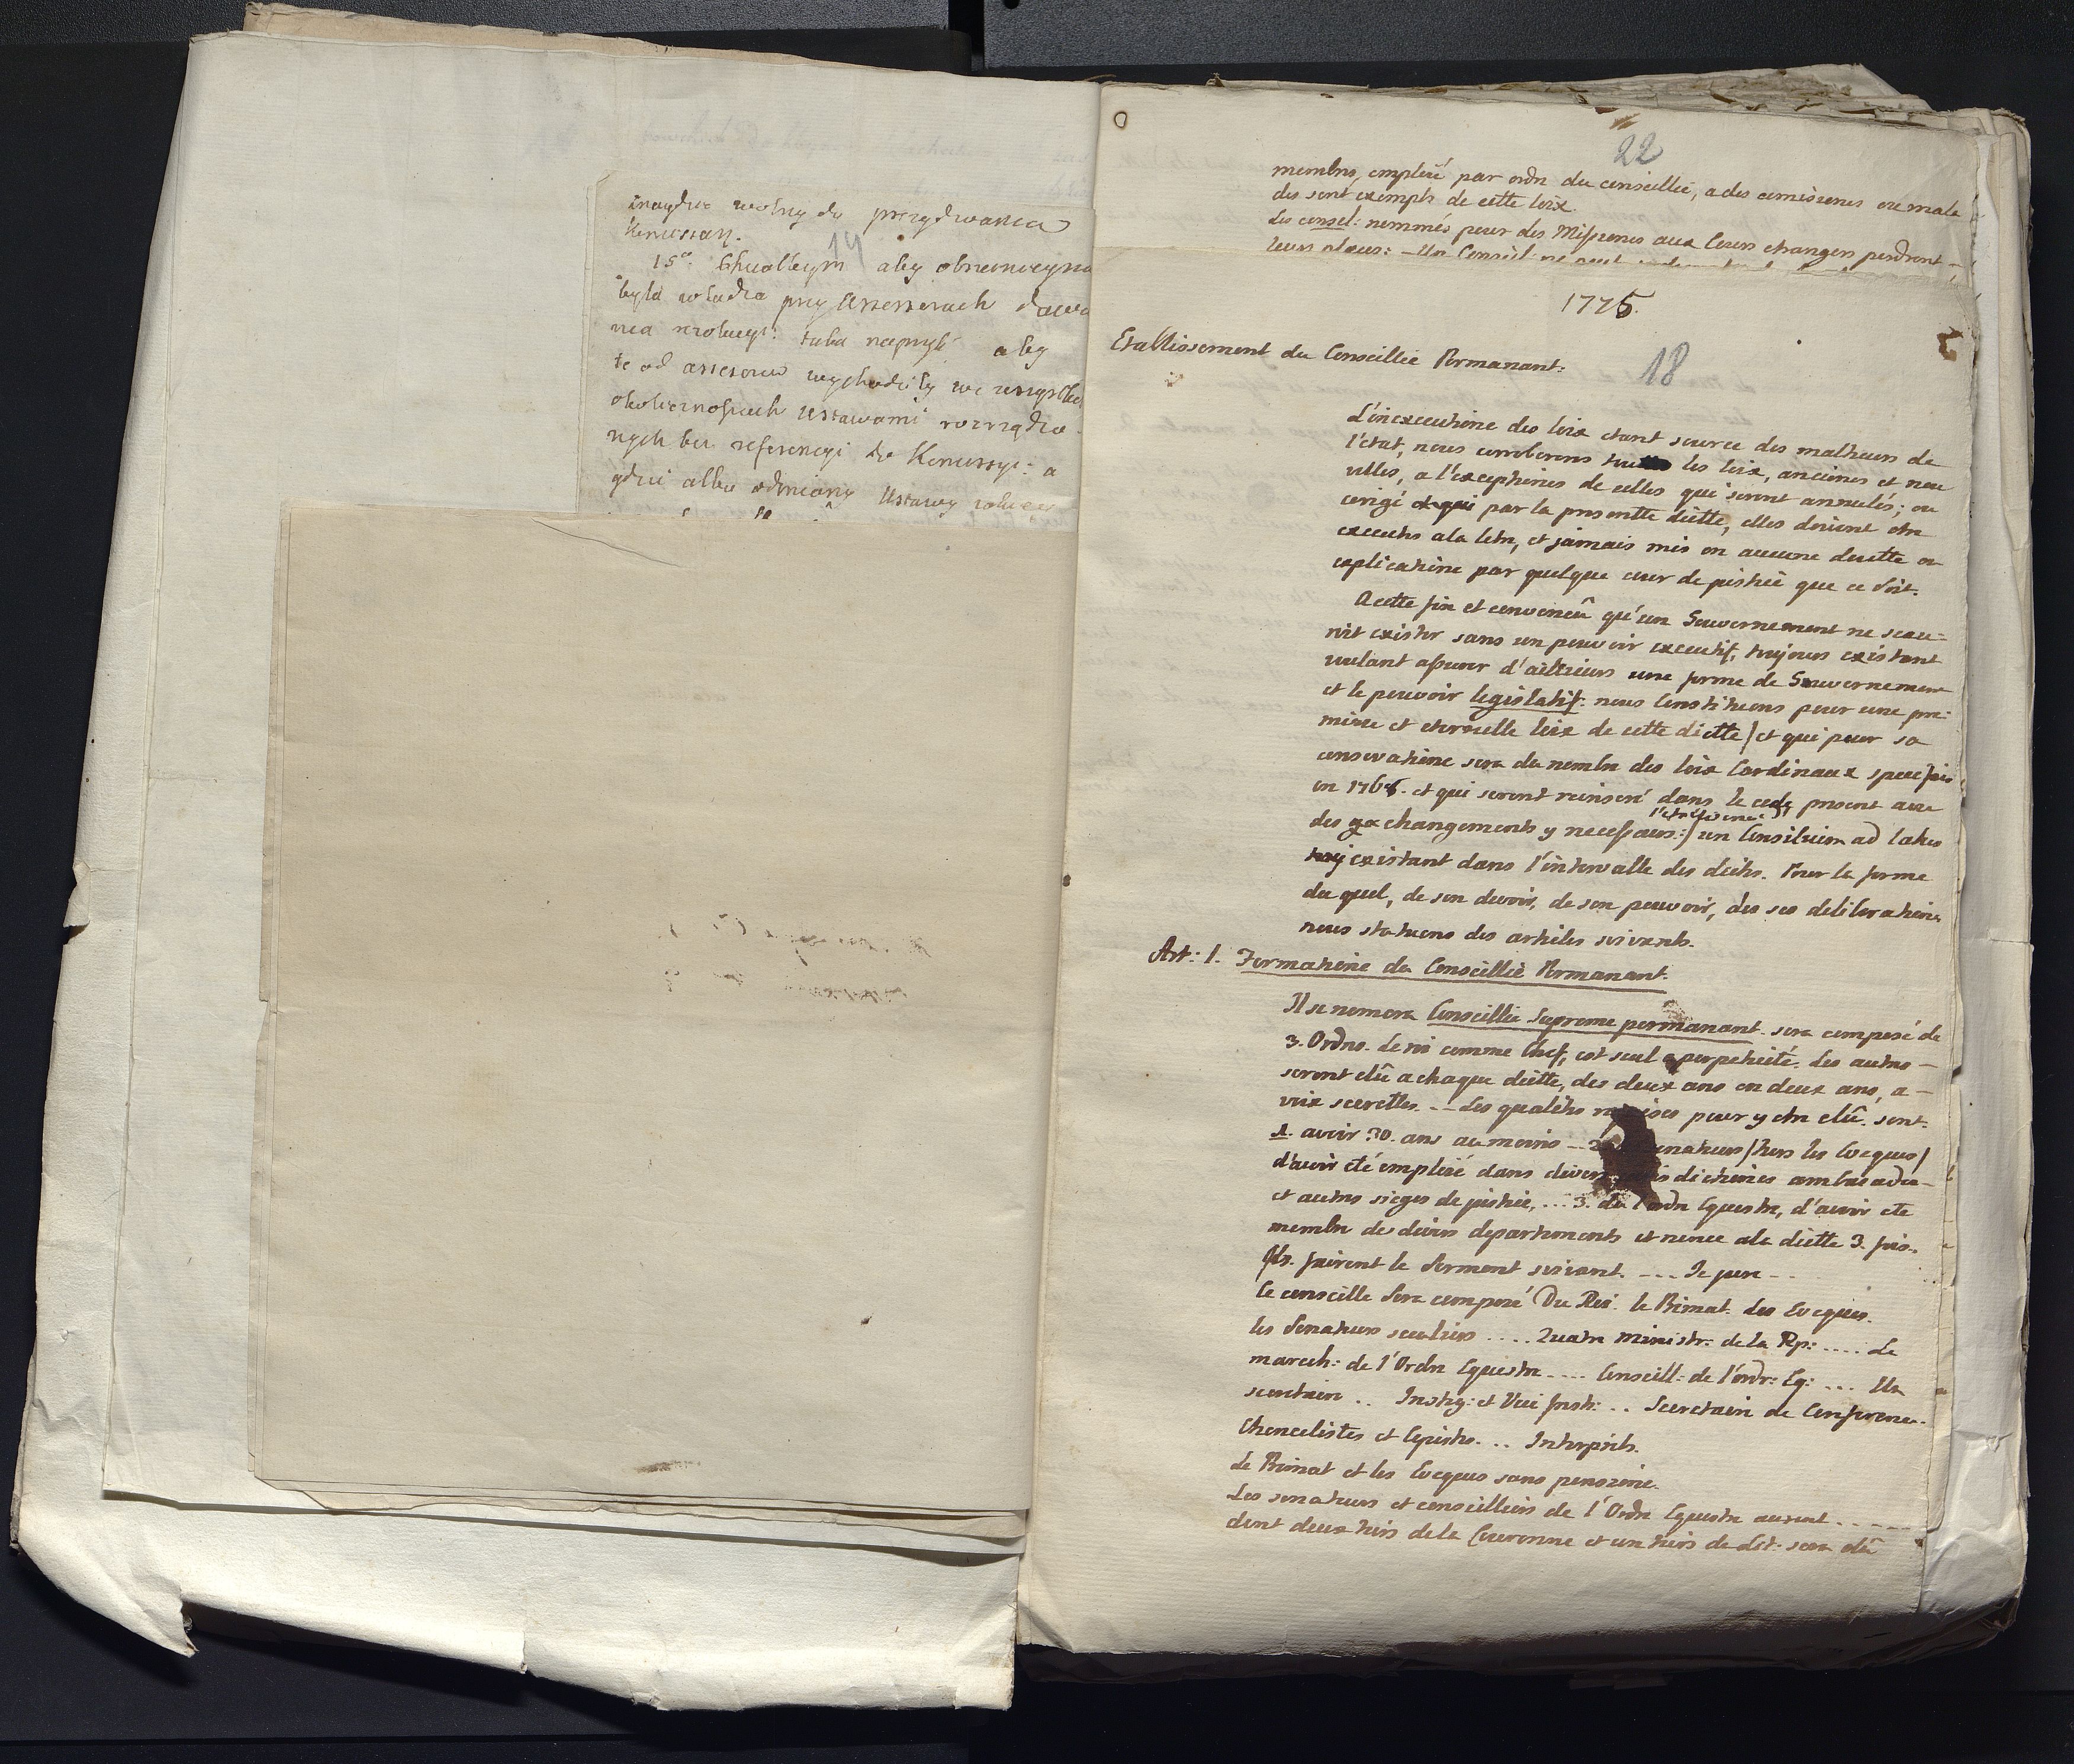 wolny do przydwania
Komissarz.
14
15º Chciałbym aby
była władza przy Assessorach
aby
te od assesorow wychodziły we wszystkich
okolicznościach Ustawami rozrządzo
nych bez referencyi do Komissyi: a
gdzie albo odmiany Ustawy
22
membres, emploié par ordre du conseillié, a des comissiones ou mala
des sont exempts de cette loix.
Les consel: nommés pour des Missiones aux Cours etrangers perdront
leurs places: – Un Conseil: ne peut
1775.
Etablissement du Conseillié Permanant:
18
L'inexecutione des loix etant source des malheurs de
l'etat, nous corroborons les loix, anciennes et nou
velles, a l'exceptiones de celles qui seront annulés; ou
corigé par la presentte diette, elles doivent etre
executés a la letre, et jamais mis en aucune douette ou
explicatione par quelque cour de justice que ce soit.
A cette fin et convencû qu'un Gouvernement ne scau=
roit exister sans un pouvoir executif, toujours existant
voulant assurer d'ailleurs une forme de Gouvernement
et le pouvoir legislatif: nous Constituons pour une pre=
miere et eternelle loix de cette diette / et qui pour sa
conservatione sera du nombre des loix Cardinaux
en 176 et qui seront reinseré dans le code present avec
des changements y necessaires:/ un Consilium ad latus
existant dans l'intervalle des dietes. Pour la forme
du quel, de son devoir, de son pouvoir, des ses deliberationes
nous statuons des articles suivants.
Art: 1. Formatione du Conseillié Permanant.
Il se nomera Conseillié Supreme permanant. sera composé de
3. Ordres. Le roi comme Chef, est seul a perpetuité. Les autres –
seront elû a chaque diette, des deux ans en deux ans, a –
voix secrettes. – – Les qualités pour y etre elû. sont.
1. avoir 30. ans au moins – 2 / hors les Eveques /
d'avoir eté emploié dans divers ambasades –
et autres sieges de justice, ... 3. de l'ordre Equestre, d'avoir ete
membre de divers departements et nonce a la diette 3. fois.
Ils. fairont le Serment suivant. – – – Je jure – –
Le conseille sera composé Du Roi. le Primat. Les Eveques.
les Senateurs seculiers .... Quatre Ministr: de la Rp: .... Le
marech: de l'Ordre Equestre .... Conseill: de l'ordr: Eq: ... Un
secretaire .. Instig: et Vice Inst: .. Secretaire de Conference.
Chancelistes et Copistes ... Interprets.
Le Primat et les Eveques sans pensione.
Les senateurs et conseilliers de l'Ordre Equestre auront .....
dont deux tiers de la Couronne et un tiers de Lit: sera elû